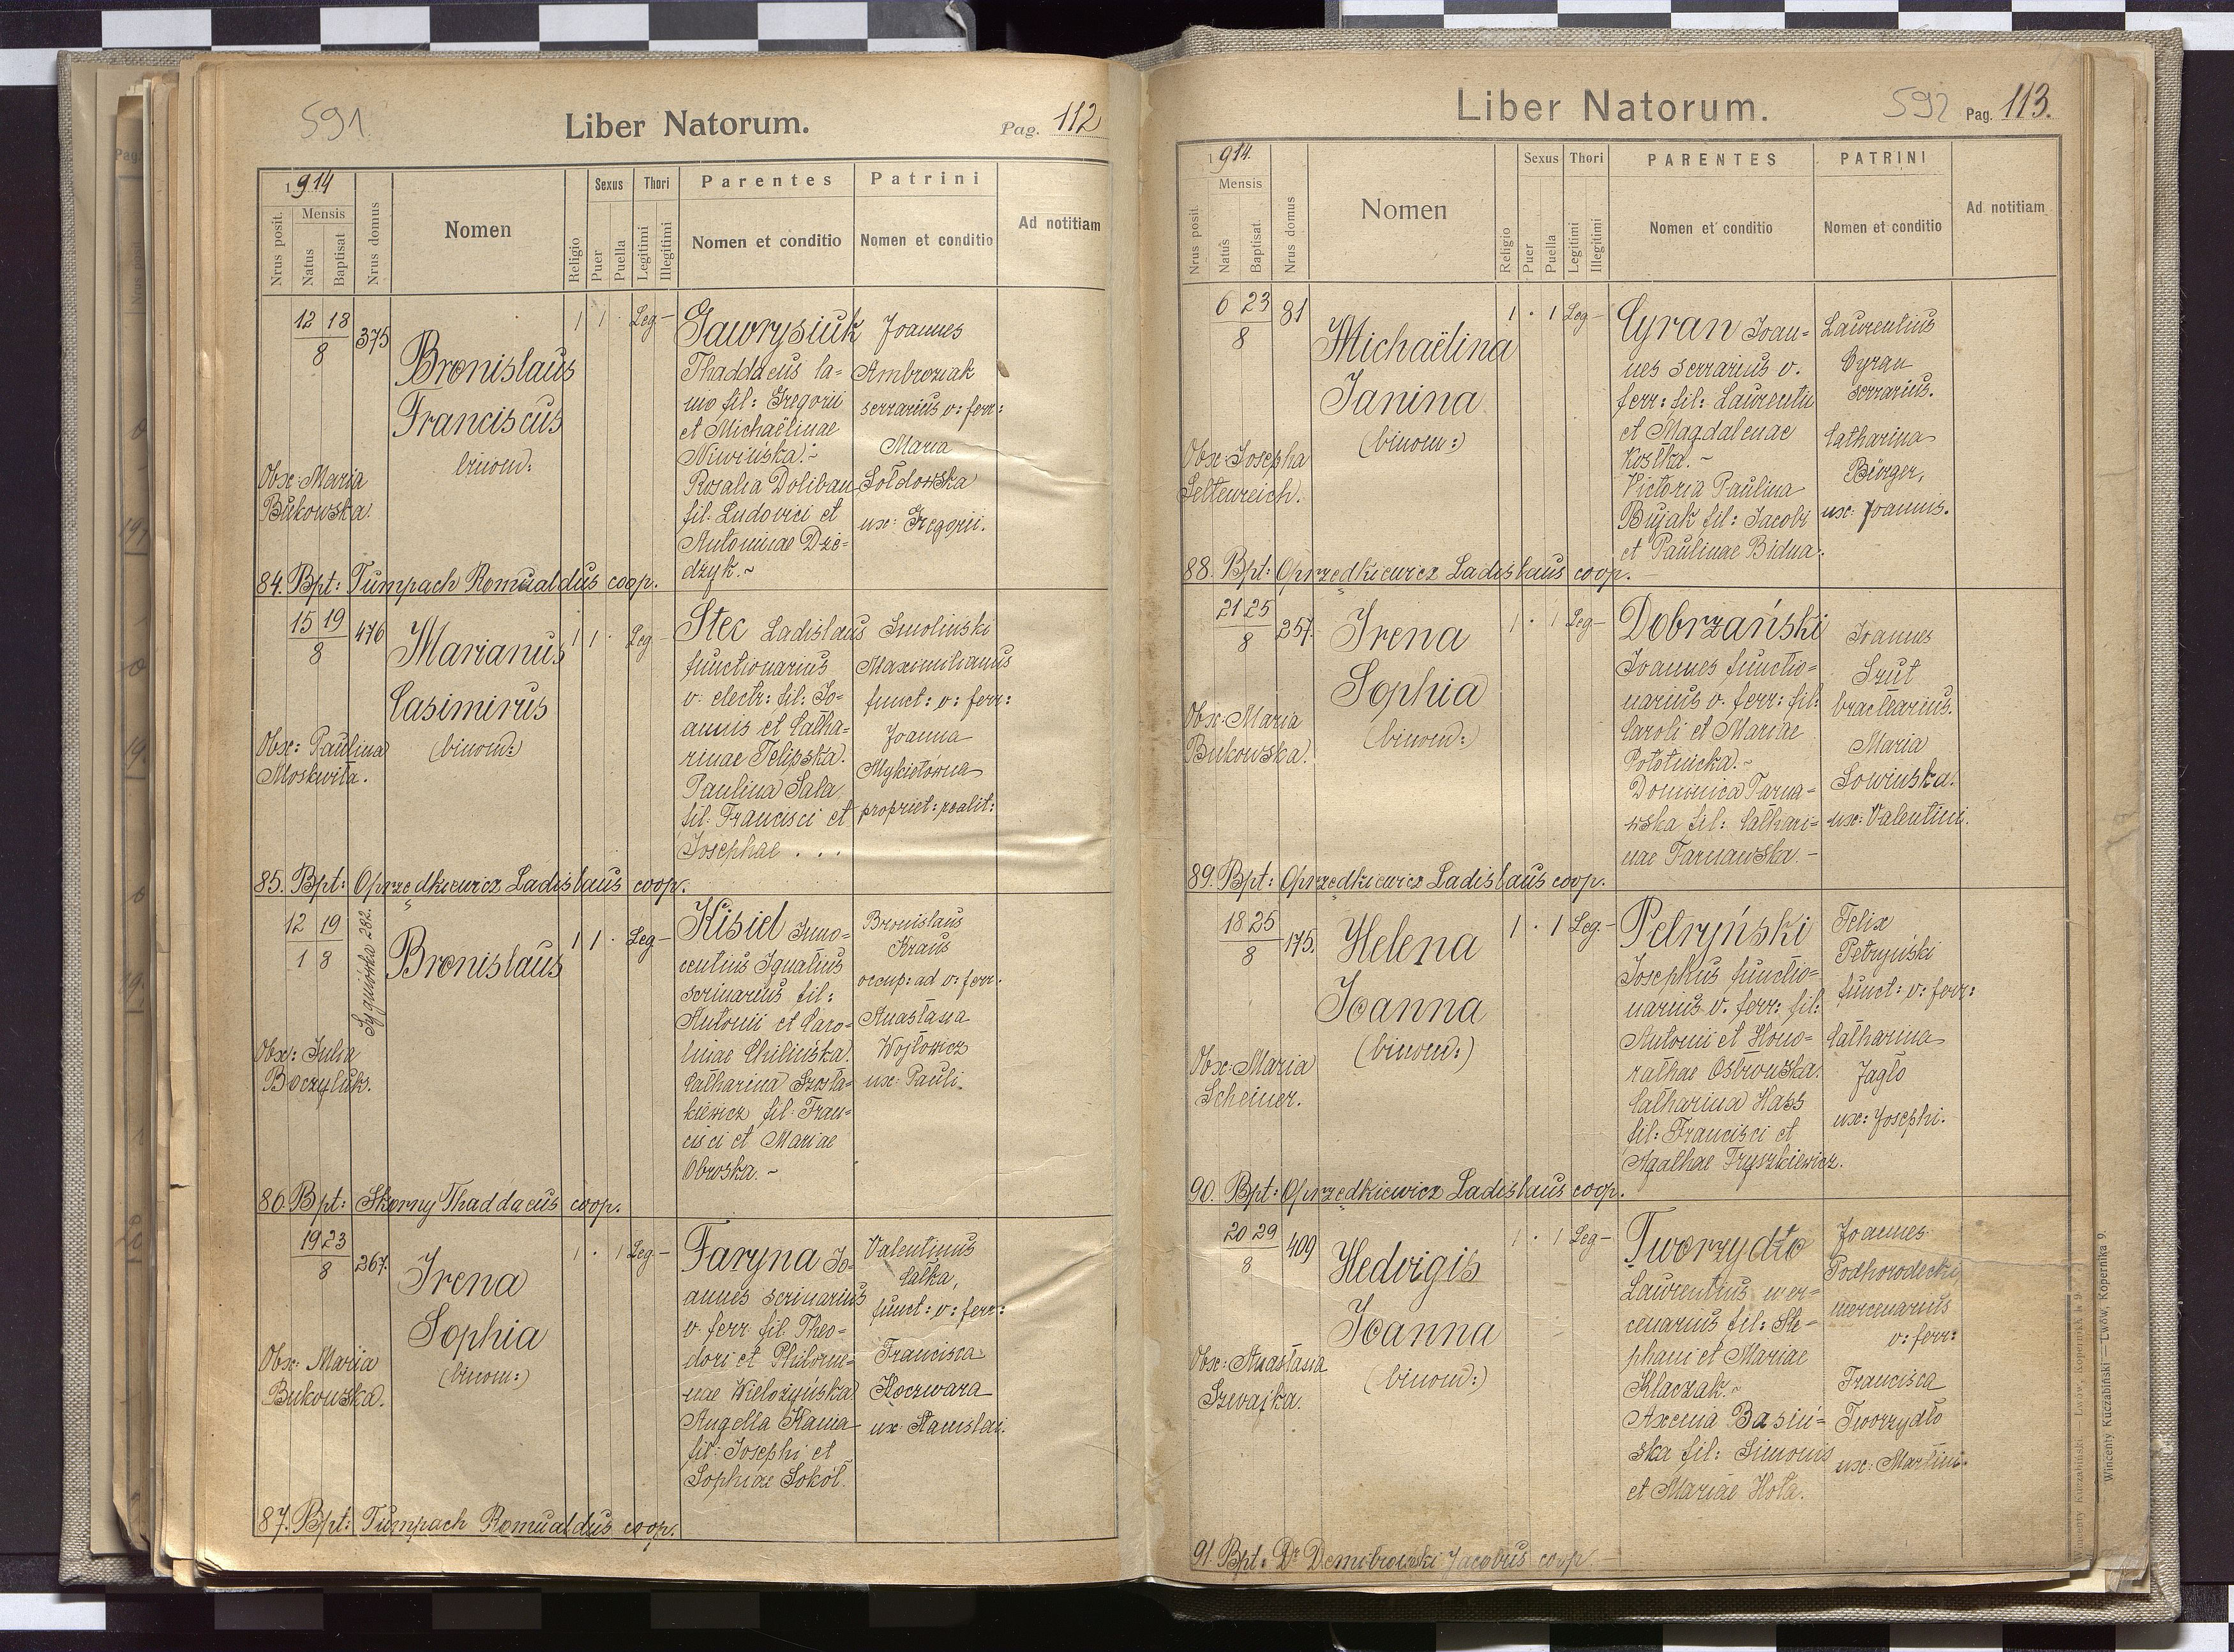 591.
Liber Natorum.
Pag. 112
1914
Mensis
Nrus posit.
Natus
Baptisat
Nrus domus
Nomen
Religio
Sexus
Puer
Puella
Thori
Legitimi
Illegitimi
Parentes
Nomen et conditio
Patrini
Nomen et conditio
Ad notitiam
12 18
8
375
Bronislaus
Franciscus
binom:
1 1 · Leg —
Obx: Maria
Bukowska.
Gawrysiuk
Thaddaeus la-
mo fil: Gregorii
et Michaëlinae
Niwińska.~
Rosalia Doliban
fil: Ludovici et
Antoninae Dzie-
dzyk.~
Joannes
Ambroziak
serrarius v: ferr:
Maria
Sołdowska
ux: Gregorii.
84. Bpt: Tumpach Romualdus coop.
15 19
8
476
Marianus
Casimirus
(binom:)
1 1 · Leg —
Obx: Paulina
Moskwita.
Stec Ladislaus
functionarius
v. electr: fil: Jo-
annis et Catha-
rinae Telipska.
Paulina Sala
fil: Francisci et
Josephae . . .
Smolinski
Maximilianus
funct: v: ferr:
Joanna
Mykietowna
propriet: realit:
85. Bpt: Oprzędkiewicz Ladislaus coop.
12 19
1 8
Sygniówka 282.
Bronislaus
1 1 · Leg —
Obx: Julia
Boczyluk.
Kisiel Inno-
centius Ignatius
scrinarius fil:
Antonii et Caro-
linae Chilińska.
Catharina Szosta-
kiewicz fil: Fran-
cisci et Mariae
Obroska.~
Bronislaus
Kraus
occup: ad v: ferr.
Anastasia
Wojtowicz
ux: Pauli.
86. Bpt: Skorny Thaddaeus coop.
19 23
8
267.
Irena
Sophia
(binom:)
1 · 1 Leg —
Obx: Maria
Bukowska.
Faryna Jo-
annes scrinarius
v. ferr: fil: Theo-
dori et Philome-
nae Wielożyńska
Angella Kania
fil: Josephi et
Sophiae Sokół.
Valentinus
Całka,
funct: v: ferr:
Francisca
Koczwara
ux: Stanislai.
87. Bpt: Tumpach Romualdus coop.
Liber Natorum.
592 Pag. 113.
1914.
Mensis
Nrus posit
Natus
Baptisat.
Nrus domus
Nomen
Religio
Sexus
Puer
Puella
Thori
Legitimi
Illegitimi
PARENTES
Nomen et conditio
PATRINI
Nomen et conditio
Ad notitiam
6 23
8
81
Michaëlina
Janina
(binom:)
1 · 1 Leg —
Obx: Josepha
Seltenreich.
Cyran Joan-
nes serrarius v.
ferr: fil: Laurentii
et Magdalenae
Kostka.~
Victoria Paulina
Bujak fil: Jacobi
et Paulinae Bidua.
Laurentius
Cyran
serrarius.
Catharina
Bürger,
ux: Joannis.
88. Bpt: Oprzędkiewicz Ladislaus coop.
21 25
8
257.
Irena
Sophia
(binom:)
1 · 1 Leg —
Obx: Maria
Bukowska.
Dobrzański
Joannes functio-
narius v. ferr: fil:
Caroli et Mariae
Potoτnicka.~
Dominica Tarna-
wska fil: Cathari-
nae Tarnawska.—
Joannes
Szut
bractearius.
Maria
Sowińska.
ux: Valentini.
89. Bpt: Oprzędkiewicz Ladislaus coop.
18 25
8
175.
Helena
Joanna
(binom:)
1 · 1 Leg —
Obx: Maria
Scheiner.
Petryński
Josephus functio-
narius v. ferr: fil:
Antonii et Hono-
rathae Ostrowska.
Catharina Hass
fil: Francisci et
Agathae Fryszkiewicz.
Felix
Petryński
funct: v: ferr:
Catharina
Jagło
ux: Josephi.
90. Bpt: Oprzędkiewicz Ladislaus coop.
20 29
8
409
Hedvigis
Joanna
(binom:)
1 · 1 Leg —
Obx: Anastasia
Szwajka.
Tworzydło
Laurentius mer-
cenarius fil: Ste-
phani et Mariae
Klaczak.~
Axenia Basiń-
ska fil: Simonis
et Mariae Hota.
Joannes
Podhorodecki
mercenarius
v: ferr:
Francisca
Tworzydło
ux: Martini.
91. Bpt: Dr Dembrowski Jacobus coop.
Wincenty Kuczabiński — Lwów, Kopernika 9.